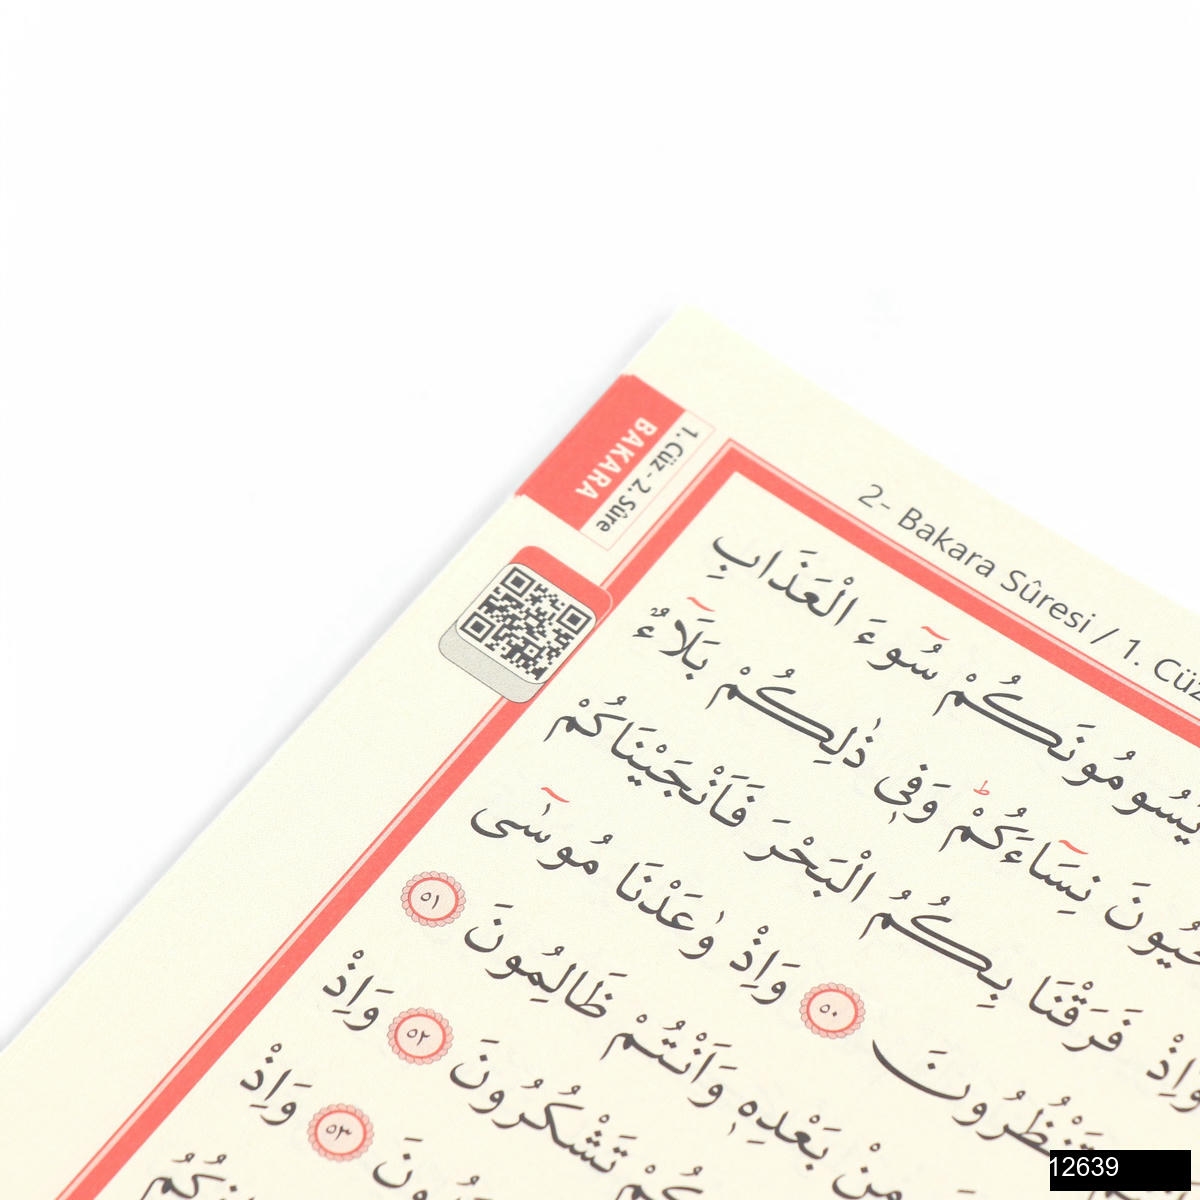 2- Bakara Sûresi / 1. Cüz
BAKARA
1. Cüz - 2. Sûre
يَسُومُونَكُمْ سُٓوءَ الْعَذَابِ
نِسَٓاءَكُمْۜ وَف۪ي ذٰلِكُمْ بَلَٓاءٌ
فَرَقْنَا بِكُمُ الْبَحْرَ فَاَنْجَيْنَاكُمْ
تَنْظُرُونَ ﴿٥٠﴾ وَاِذْ وٰعَدْنَا مُوسٰٓى
مِنْ بَعْدِه۪ وَاَنْتُمْ ظَالِمُونَ ﴿٥١﴾
تَشْكُرُونَ ﴿٥٢﴾ وَاِذْ
﴿٥٣﴾ وَاِذْ
12639